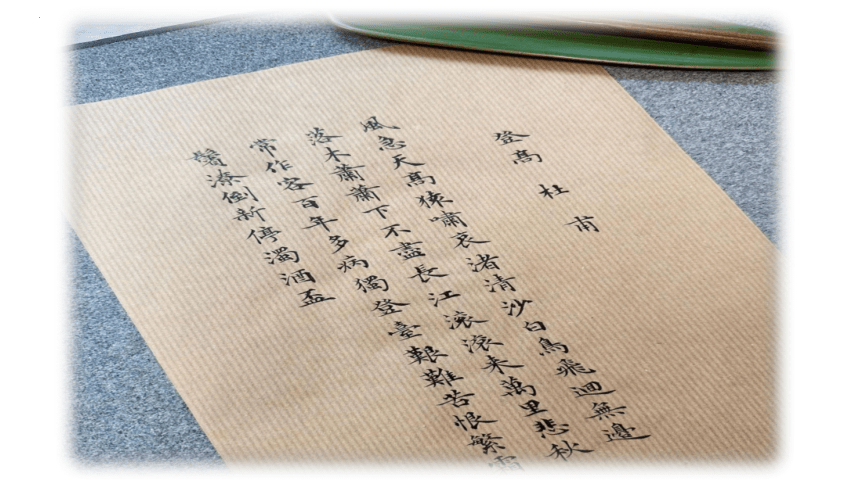 登高 杜甫
風急天高猿嘯哀渚清沙白鳥飛迴無邊
落木蕭蕭下不盡長江滚滚来萬里悲秋
常作客百年多病獨登臺艱難苦恨繁
鬢潦倒新停濁酒盃